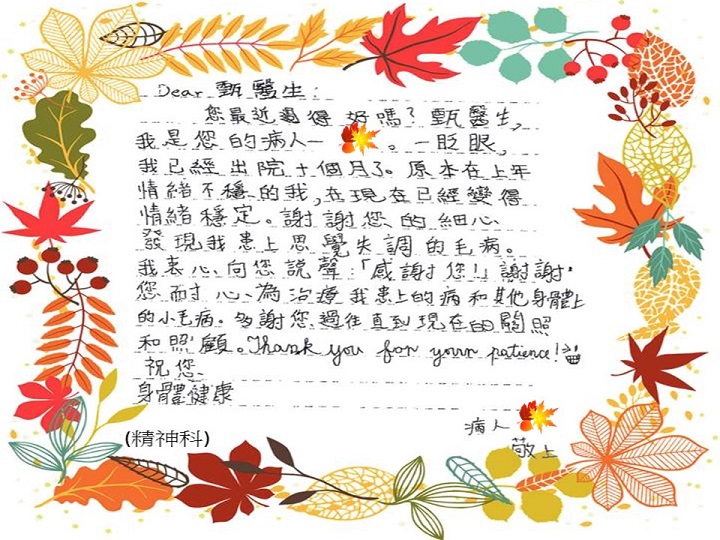 Dear 甄醫生:
您最近過得好嗎? 甄醫生,
我是您的病人— 。一眨眼,
我已經出院十個月了。原本在上年
情緒不穩的我,在現在已經變得
情緒穩定。謝謝您的細心
發現我患上思覺失調的毛病。
我衷心向您說聲:「感謝您!」謝謝
您耐心為治療我患上的病和其他身體上
的小毛病。多謝您過往直到現在的關照
和照顧。Thank you for your patience!
祝您
身體健康
病人
敬上
(精神科)